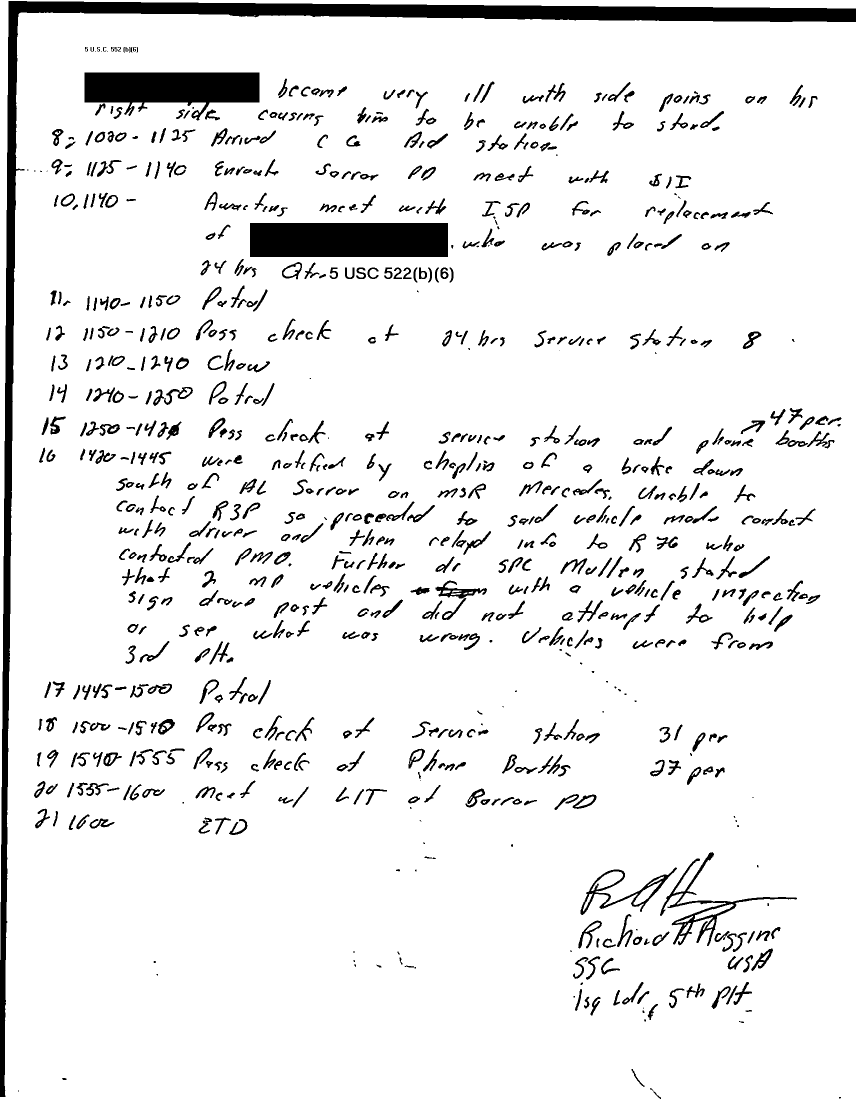 5 U.S.C. 552 (b)(6)
became very ill with side pains on his
right side causing him to be unable to stand.
8; 1020-1125 Arrived C Co Aid station
9; 1125-1140 Enroute Sarrar PD meet with
10, 1140- Awaiting meet with for replacement
of who was placed on
24 hrs Qtr. 5 USC 522(b)(6)
11. 1140-1150 Patrol
12 1150-1210 Pass check at 24 hrs Service Station 8
13 1210-1240 Chow
14 1240-1250 Patrol
47 per.
15 1250-1420 Pass check at service station and phone booths
16 1420-1445 were notified by chaplin of a brake down
south of AL Sarrar on MSR Mercedes. Unable to
contact R3P so proceeded to said vehicle made contact
with driver and then relayd info to R 76 who
contacted PMO. Further dr SPC Mullen stated
that 2 MP vehicles with a vehicle inspection
sign drove past and did not attempt to help
or see what was wrong. Vehicles were from
3rd Plt.
17 1445-1500 Patrol
18 1500-1540 Pass check at Service station 31 per
19 1540-1555 Pass check at Phone Booths 27 per
20 1555-1600 Meet w/ LIT at PD
21 1600 ETD
Richard A Huggins
SSG USA
1sq Ldr, 5th Plt